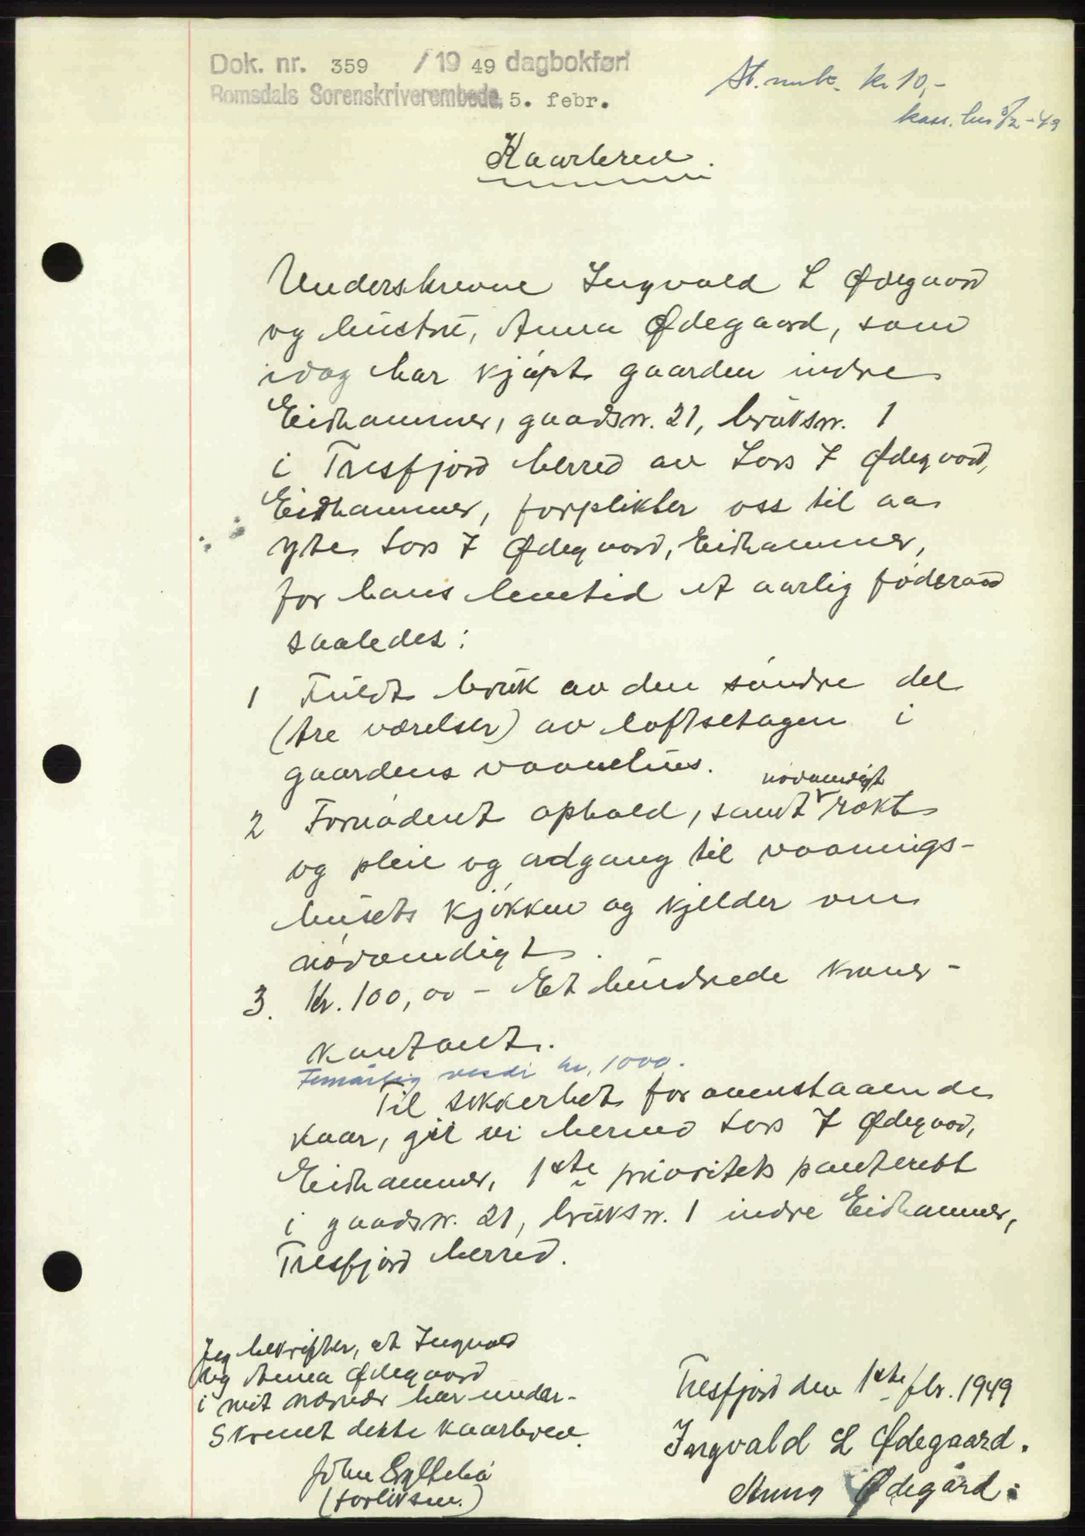 Dok. nr. 359 / 19 49 dagbokført
Romsdals Sorenskriverembede, 5. febr.
St. merk. kr 10,-
kass. lns 5/2-49
Kaarbrev.
Underskrevne Ingvald L Ødegaard
og hustru, Anna Ødegaard, som
idag har kjøpt gaarden indre
Eidhammer, gaardsnr. 21, bruksnr. 1
i Tresfjord herred av Lars J Ødegaard,
Eidhammer, forplikter oss til aa
yte Lars J Ødegaard, Eidhammer,
for hans levetid et aarlig føderaad
saaledes:
1 Fuldt bruk av den søndre del
(tre værelser) av loftsetagen i
gaardens vaanehus.
2 Fornødent ophold, samt nødvendigt røkt
og pleie og adgang til vaanings-
husets kjøkken og kjelder om
nødvendigt.
3. Kr. 100,00 - Et hundrede kroner -
kontant.
Femårlig verdi kr. 1000.
Til sikkerhet for ovenstaaende
kaar, gir vi herved Lars J Ødegaard,
Eidhammer, 1ste prioritets panterett
i gaardsnr. 21, bruksnr. 1 indre Eidhammer,
Tresfjord herred.
Jeg bekrifter, at Ingvald
og Anna Ødegaard
i mit nærvær har under-
skrevet dette kaarbrev.
John
(Forliksm.)
Tresfjord den 1ste febr. 1949
Ingvald L Ødegaard.
Anna Ødegård.